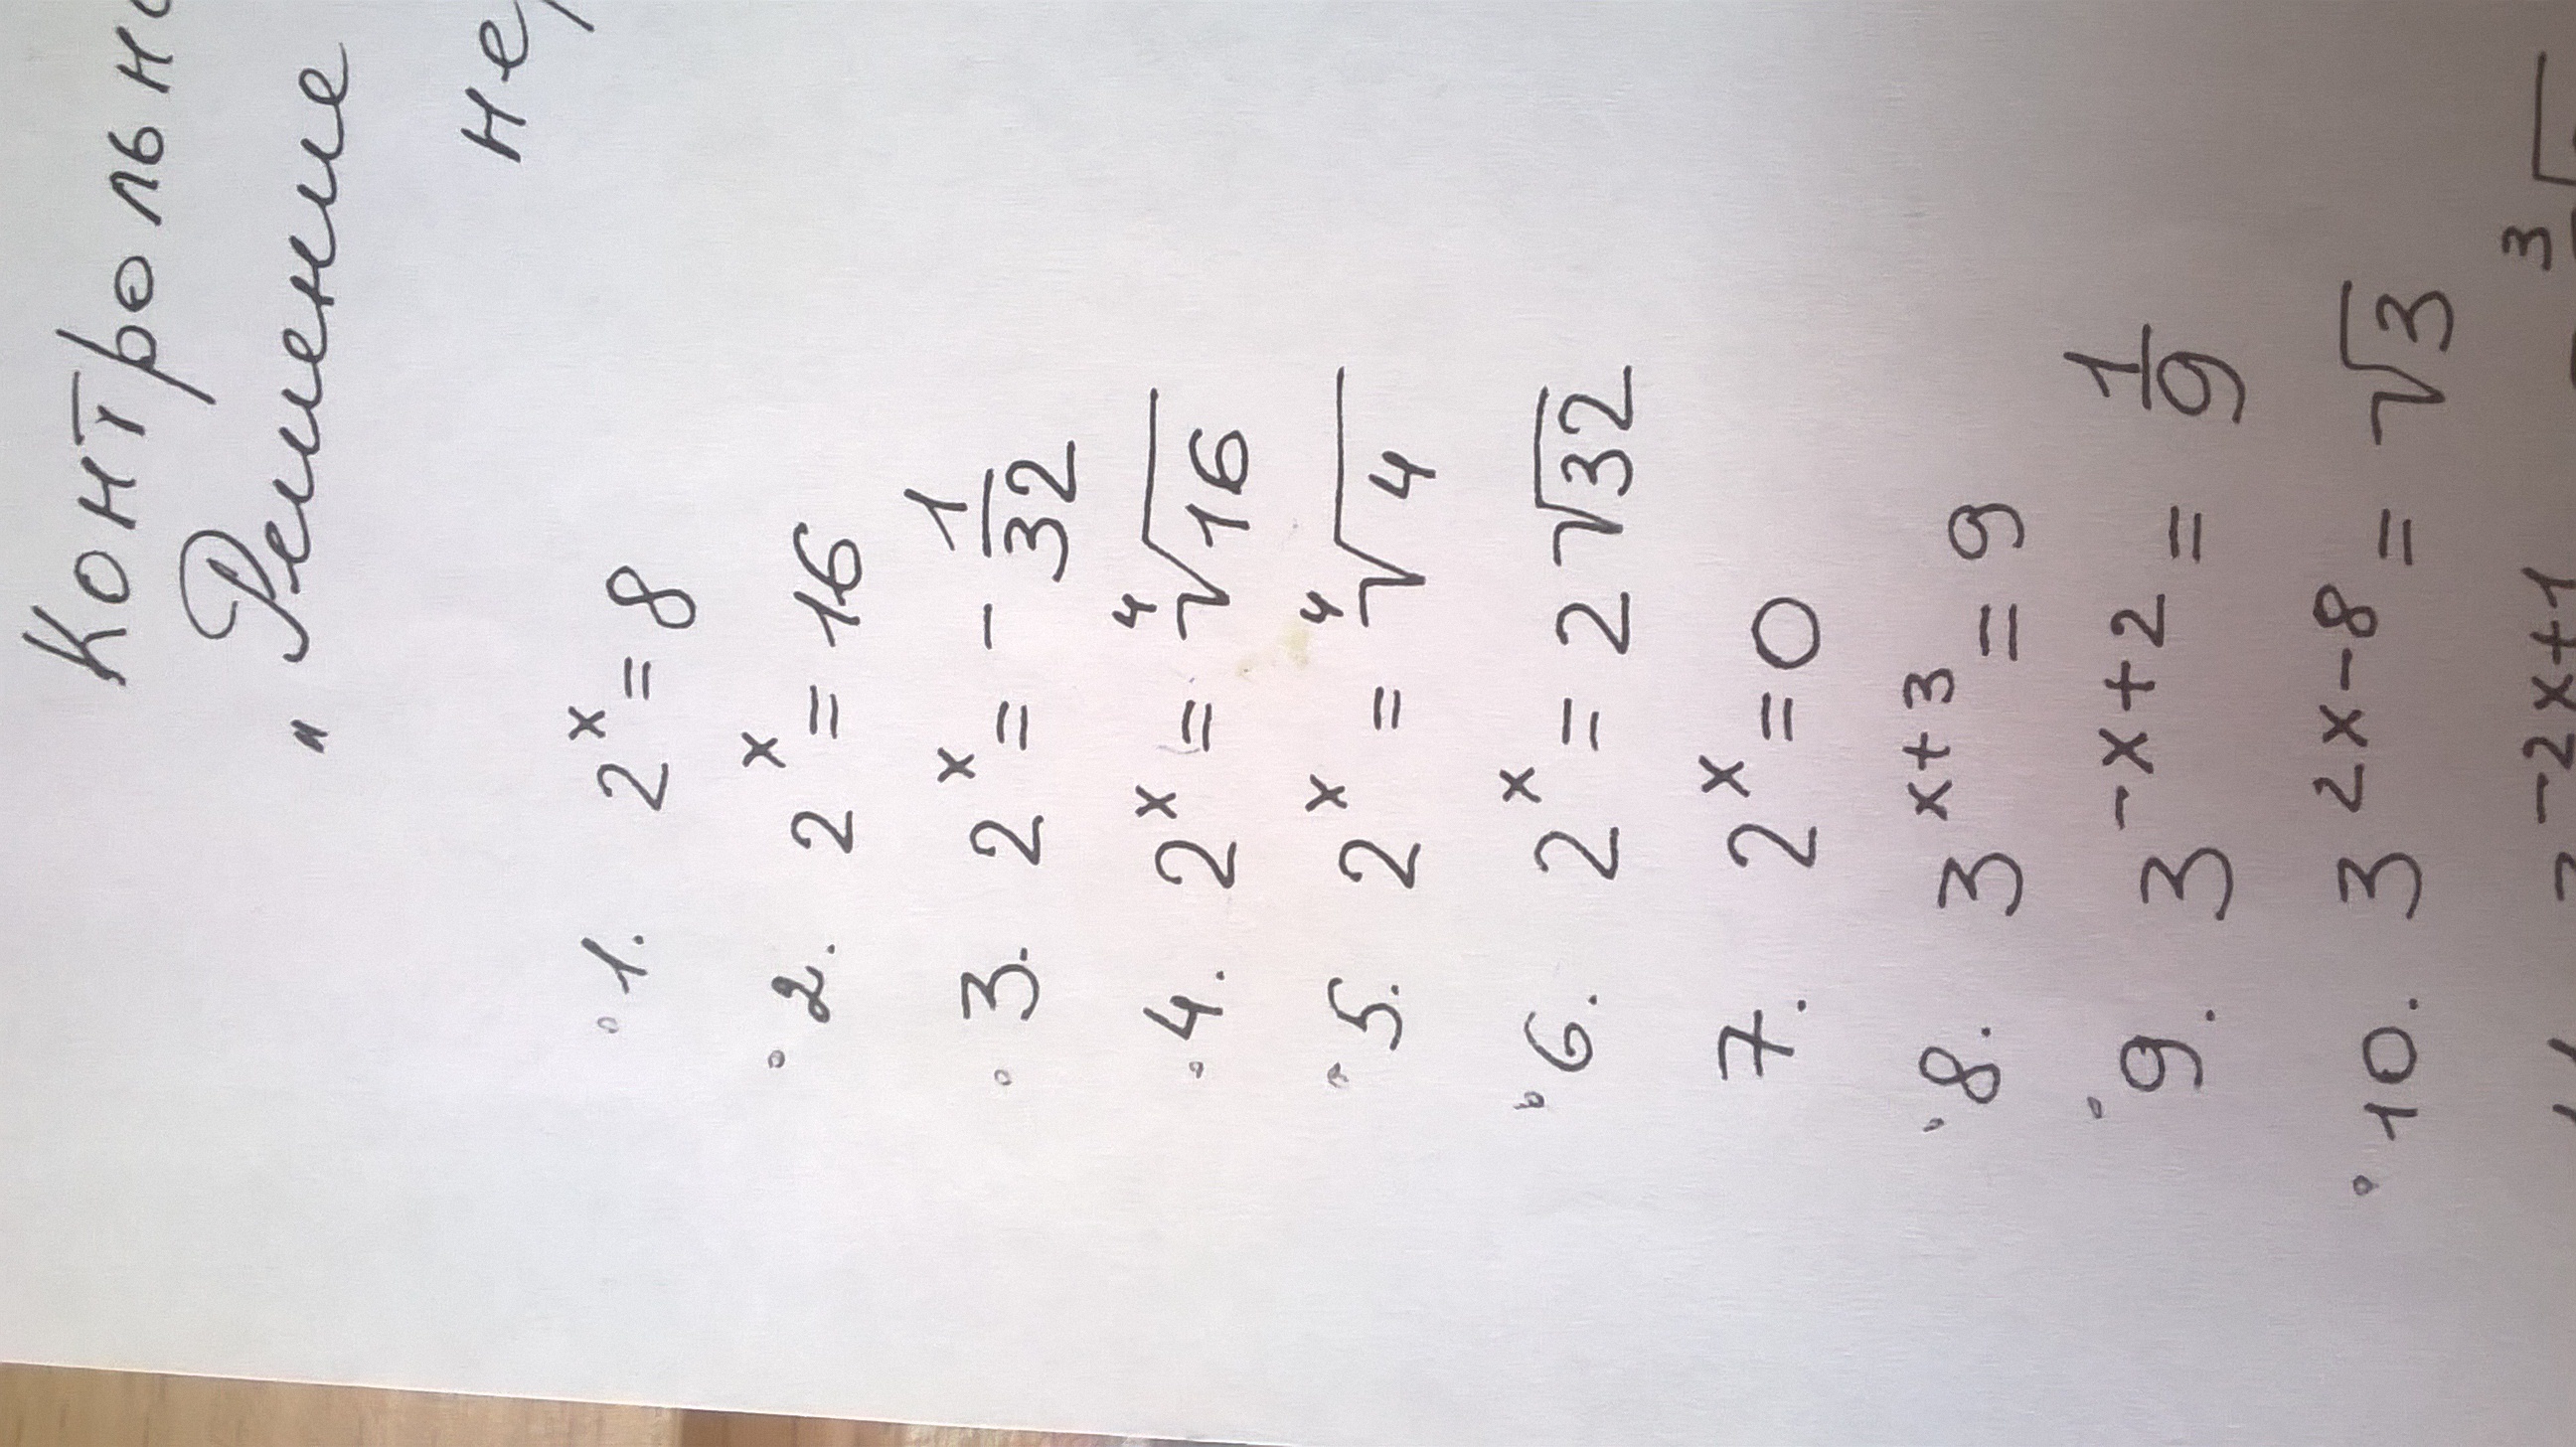 Контрольн
" Решение
нер
1. 2^x = 8
2. 2^x = 16
3. 2^x = - 1/32
4. 2^x = ⁴√16
5. 2^x = ⁴√4
6. 2^x = 2√32
7. 2^x = 0
8. 3^x+3 = 9
9. 3^-x+2 = 1/9
10. 3^2x-8 = √3
-2x+1 3√